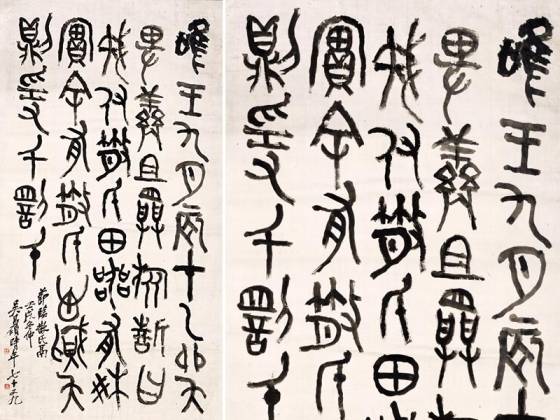 唯王九月辰才乙卯矢
卑鮮且旅誓曰
我付散氏田器有爽
實余有散氏心賊
則爰千罰千
節臨散氏鬲
壬戌年
吳昌碩時年七十九
唯王九月辰才
卑鮮且
我付散氏田
實余有散氏
則爰千罰